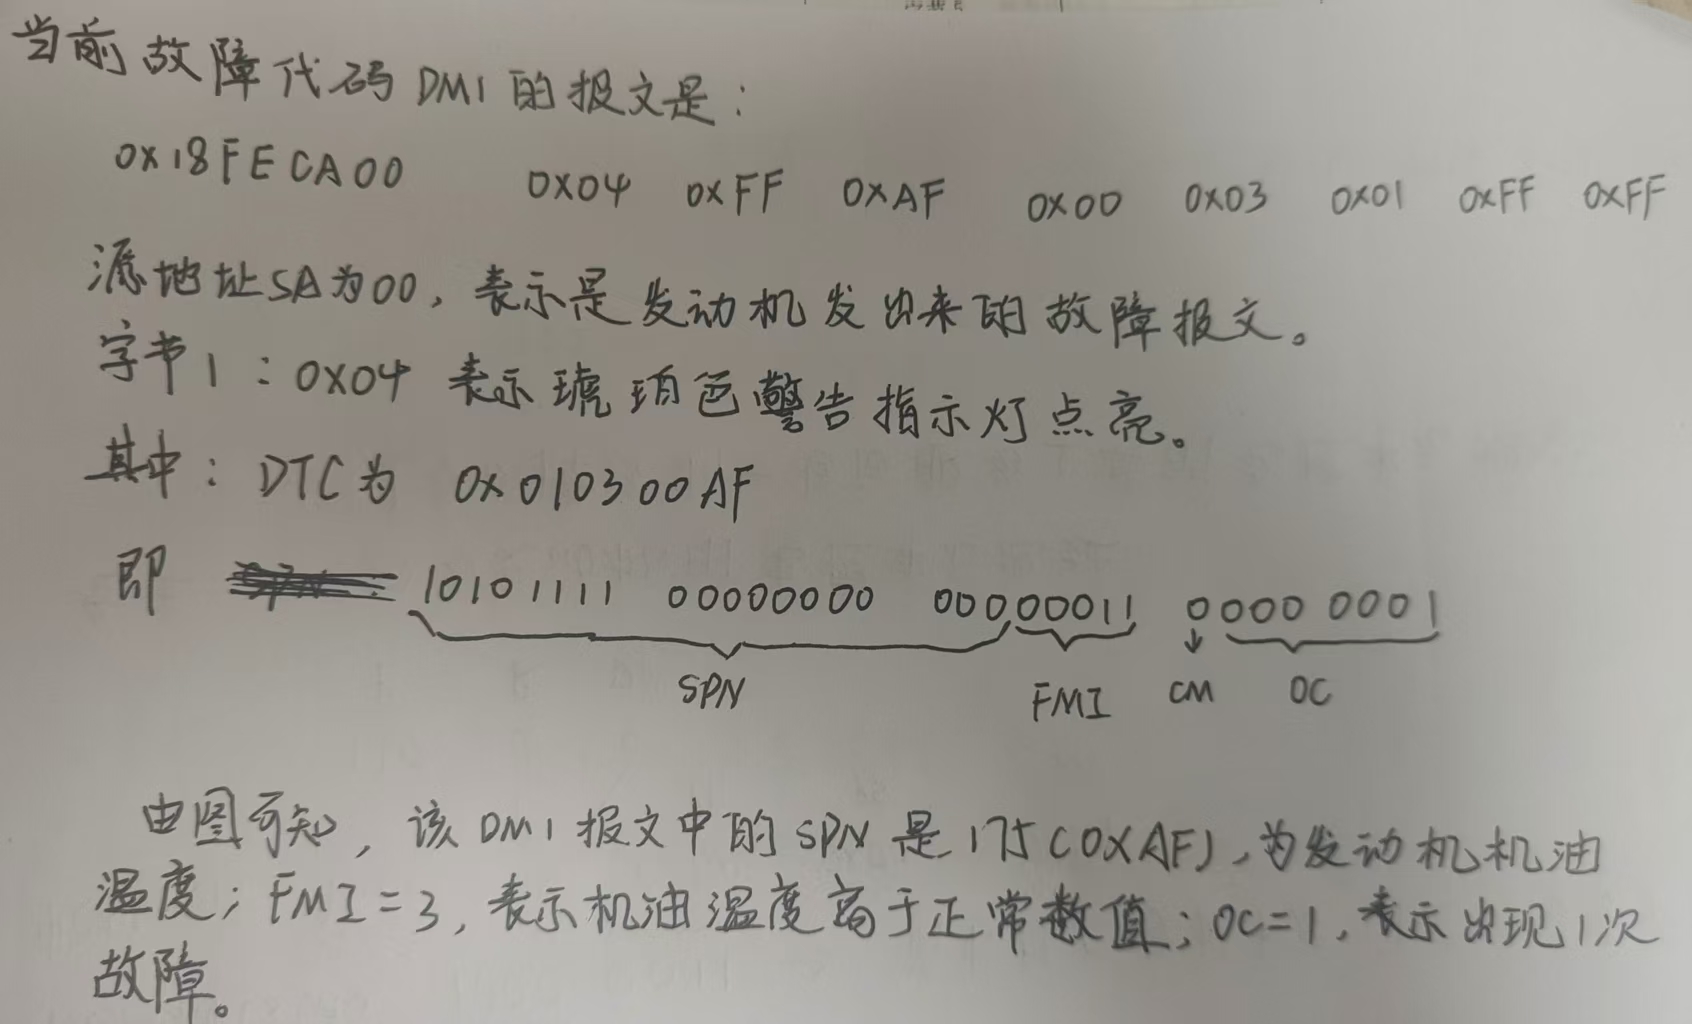 当前故障代码DM1的报文是：
0x18FECA00 0x04 0xFF 0xAF 0x00 0x03 0x01 0xFF 0xFF
源地址SA为00，表示是发动机发出来的故障报文。
字节1：0x04 表示琥珀色警告指示灯点亮。
其中：DTC为 0x010300AF
即 10101111 00000000 00000011 0000 0001
SPN FMI CM OC
由图可知，该DM1报文中的SPN是175（0XAF），为发动机机油
温度；FMI=3，表示机油温度高于正常数值；OC=1，表示出现1次
故障。